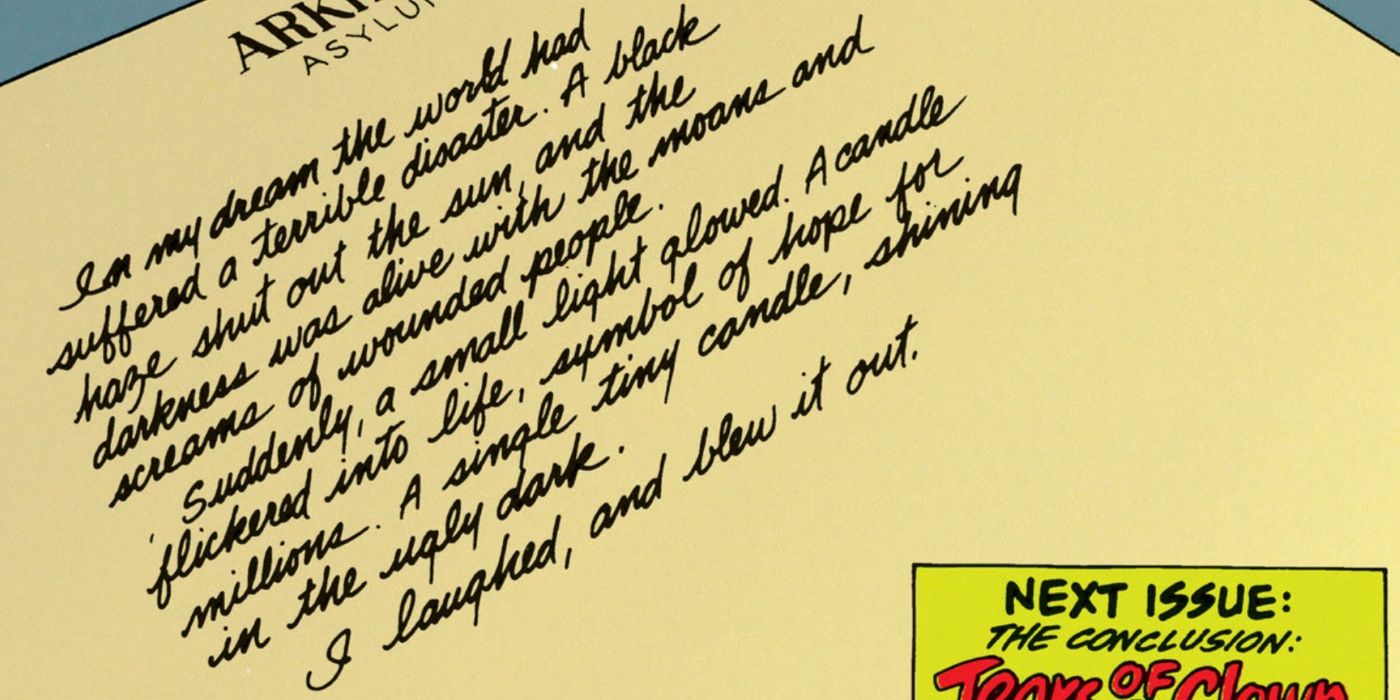 ARK
ASYLU
In my dream the world had
suffered a terrible disaster. A black
haze shut out the sun, and the
darkness was alive with the moans and
screams of wounded people.
Suddenly, a small light glowed. A candle
flickered into life, symbol of hope for
millions. A single tiny candle, shining
in the ugly dark.
I laughed, and blew it out.
NEXT ISSUE:
THE CONCLUSION:
Tears OF Clown